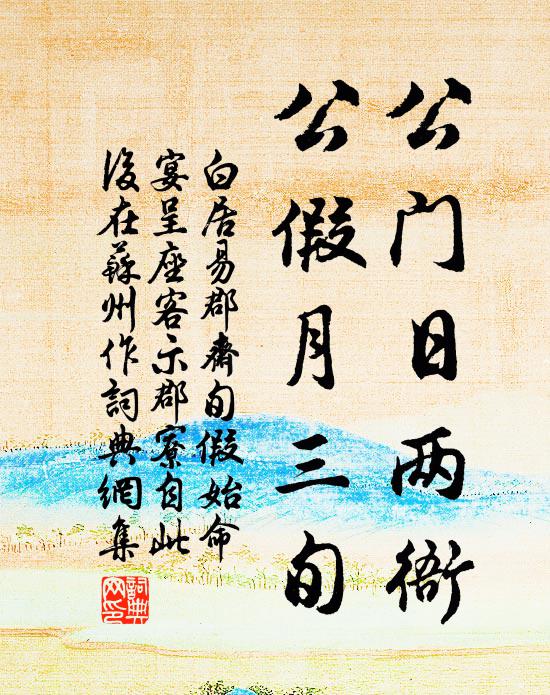 公门日两衙
公假月三旬
白居易郡斋旬假始命
宴呈座客示郡寮自此
後在蘇州作詞典網集
詞典